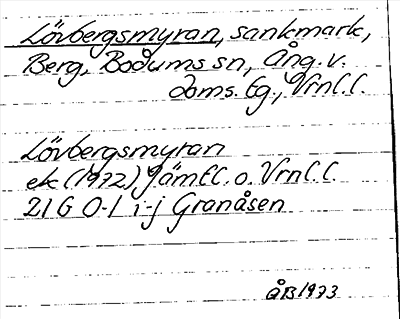 Lövbergsmyran, sankmark,
Berg, Bodums sn, Ång. v.
doms. lg., Vrnl. l.
Lövbergsmyran
ek (1972) Jämtl. o. Vrnl. l.
21 G 0-1 i-j Granåsen
ÅB 1973